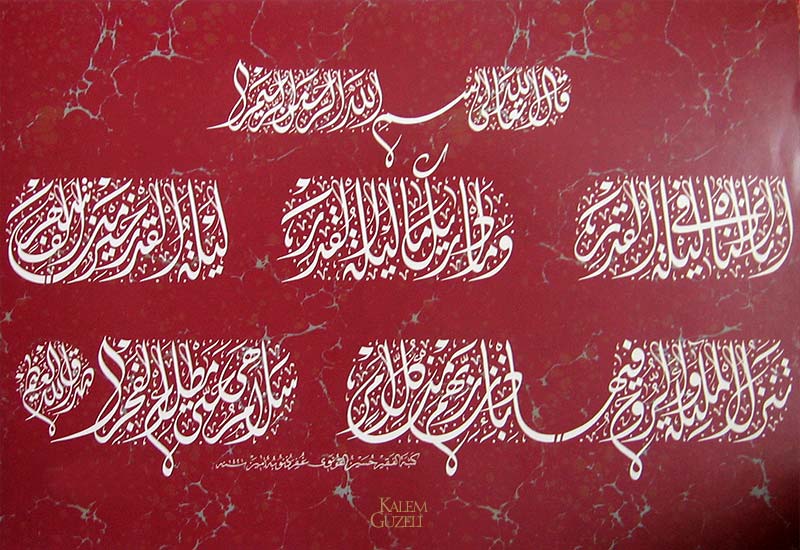 قال الله تعالى بسم الله الرحمن الرحيم
إنا أنزلناه في ليلة القدر وما أدراك ما ليلة القدر ليلة القدر خير من ألف شهر
تنزل الملئكة والروح فيها بإذن ربهم من كل أمر سلام هي حتى مطلع الفجر صدق الله العظيم
كتبه الفقير حسين
KALEM
GÜZELİ